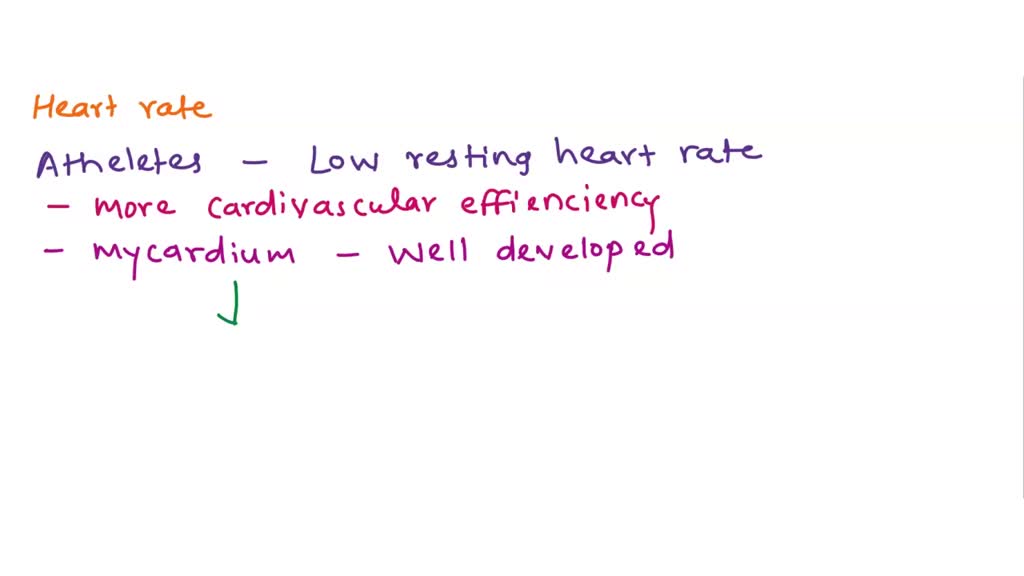 Heart rate
Atheletes - Low resting heart rate
- more cardivascular effienciency
- mycardium - well developed